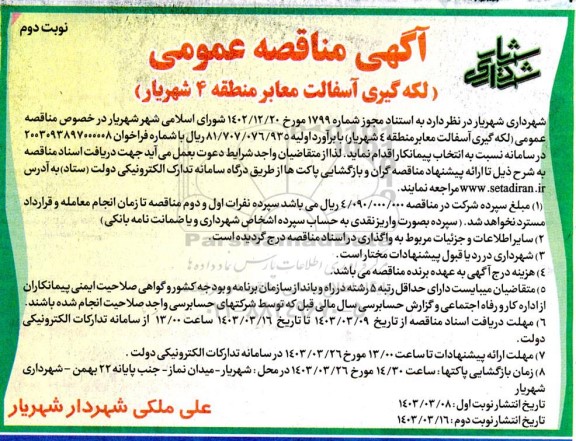 نوبت دوم
شهرداری شهریار
آگهی مناقصه عمومی
( لکه گیری آسفالت معابر منطقه ۴ شهریار )
شهرداری شهریار در نظر دارد به استناد مجوز شماره ۱۷۹۹ مورخ ۱۴۰۲/۱۲/۲۰ شورای اسلامی شهر شهریار در خصوص مناقصه
عمومی (لکه گیری آسفالت معابر منطقه ۴ شهریار) با برآورد اولیه ۸۱/۷۰۷/۰۷۶/۹۳۵ ریال با شماره فراخوان ۲۰۰۳۰۹۳۸۹۷۰۰۰۰۰۸
در سامانه نسبت به انتخاب پیمانکار اقدام نماید. لذا از متقاضیان واجد شرایط دعوت بعمل می آید جهت دریافت اسناد مناقصه
به شرح ذیل تا ارائه پیشنهاد مناقصه گران و بازگشایی پاکت ها از طریق درگاه سامانه تدارک الکترونیکی دولت (ستاد) به آدرس
www.setadiran.ir مراجعه نمایند.
۱) مبلغ سپرده شرکت در مناقصه ۴/۰۹۰/۰۰۰/۰۰۰ ریال می باشد سپرده نفرات اول و دوم مناقصه تا زمان انجام معامله و قرارداد
مسترد نخواهد شد. ( سپرده بصورت واریز نقدی به حساب سپرده اشخاص شهرداری و یا ضمانت نامه بانکی)
۲) سایر اطلاعات و جزئیات مربوط به واگذاری در اسناد مناقصه درج گردیده است.
۳) شهرداری در رد یا قبول پیشنهادات مختار است.
۴) هزینه درج آگهی به عهده برنده مناقصه می باشد.
۵) متقاضیان میبایست دارای حداقل رتبه ۵ رشته در راه و باند از سازمان برنامه و بودجه کشور و گواهی صلاحیت ایمنی پیمانکاران
از اداره کار و رفاه اجتماعی و گزارش حسابرسی سال مالی قبل که توسط شرکتهای حسابرسی واجد صلاحیت انجام شده باشند.
۶) مهلت دریافت اسناد مناقصه از تاریخ ۱۴۰۳/۰۳/۰۹ تا تاریخ ۱۴۰۳/۰۳/۱۶ ساعت ۱۳/۰۰ از سامانه تدارکات الکترونیکی
دولت.
۷) مهلت ارائه پیشنهادات تا ساعت ۱۳/۰۰ مورخ ۱۴۰۳/۰۳/۲۶ در سامانه تدارکات الکترونیکی دولت .
۸) زمان بازگشایی پاکتها : ساعت ۱۴/۳۰ مورخ ۱۴۰۳/۰۳/۲۶ در محل : شهریار - میدان نماز - جنب پایانه ۲۲ بهمن - شهرداری
شهریار
تاریخ انتشار نوبت اول : ۱۴۰۳/۰۳/۰۸
تاریخ انتشار نوبت دوم : ۱۴۰۳/۰۳/۱۶
علی ملکی شهردار شهریار